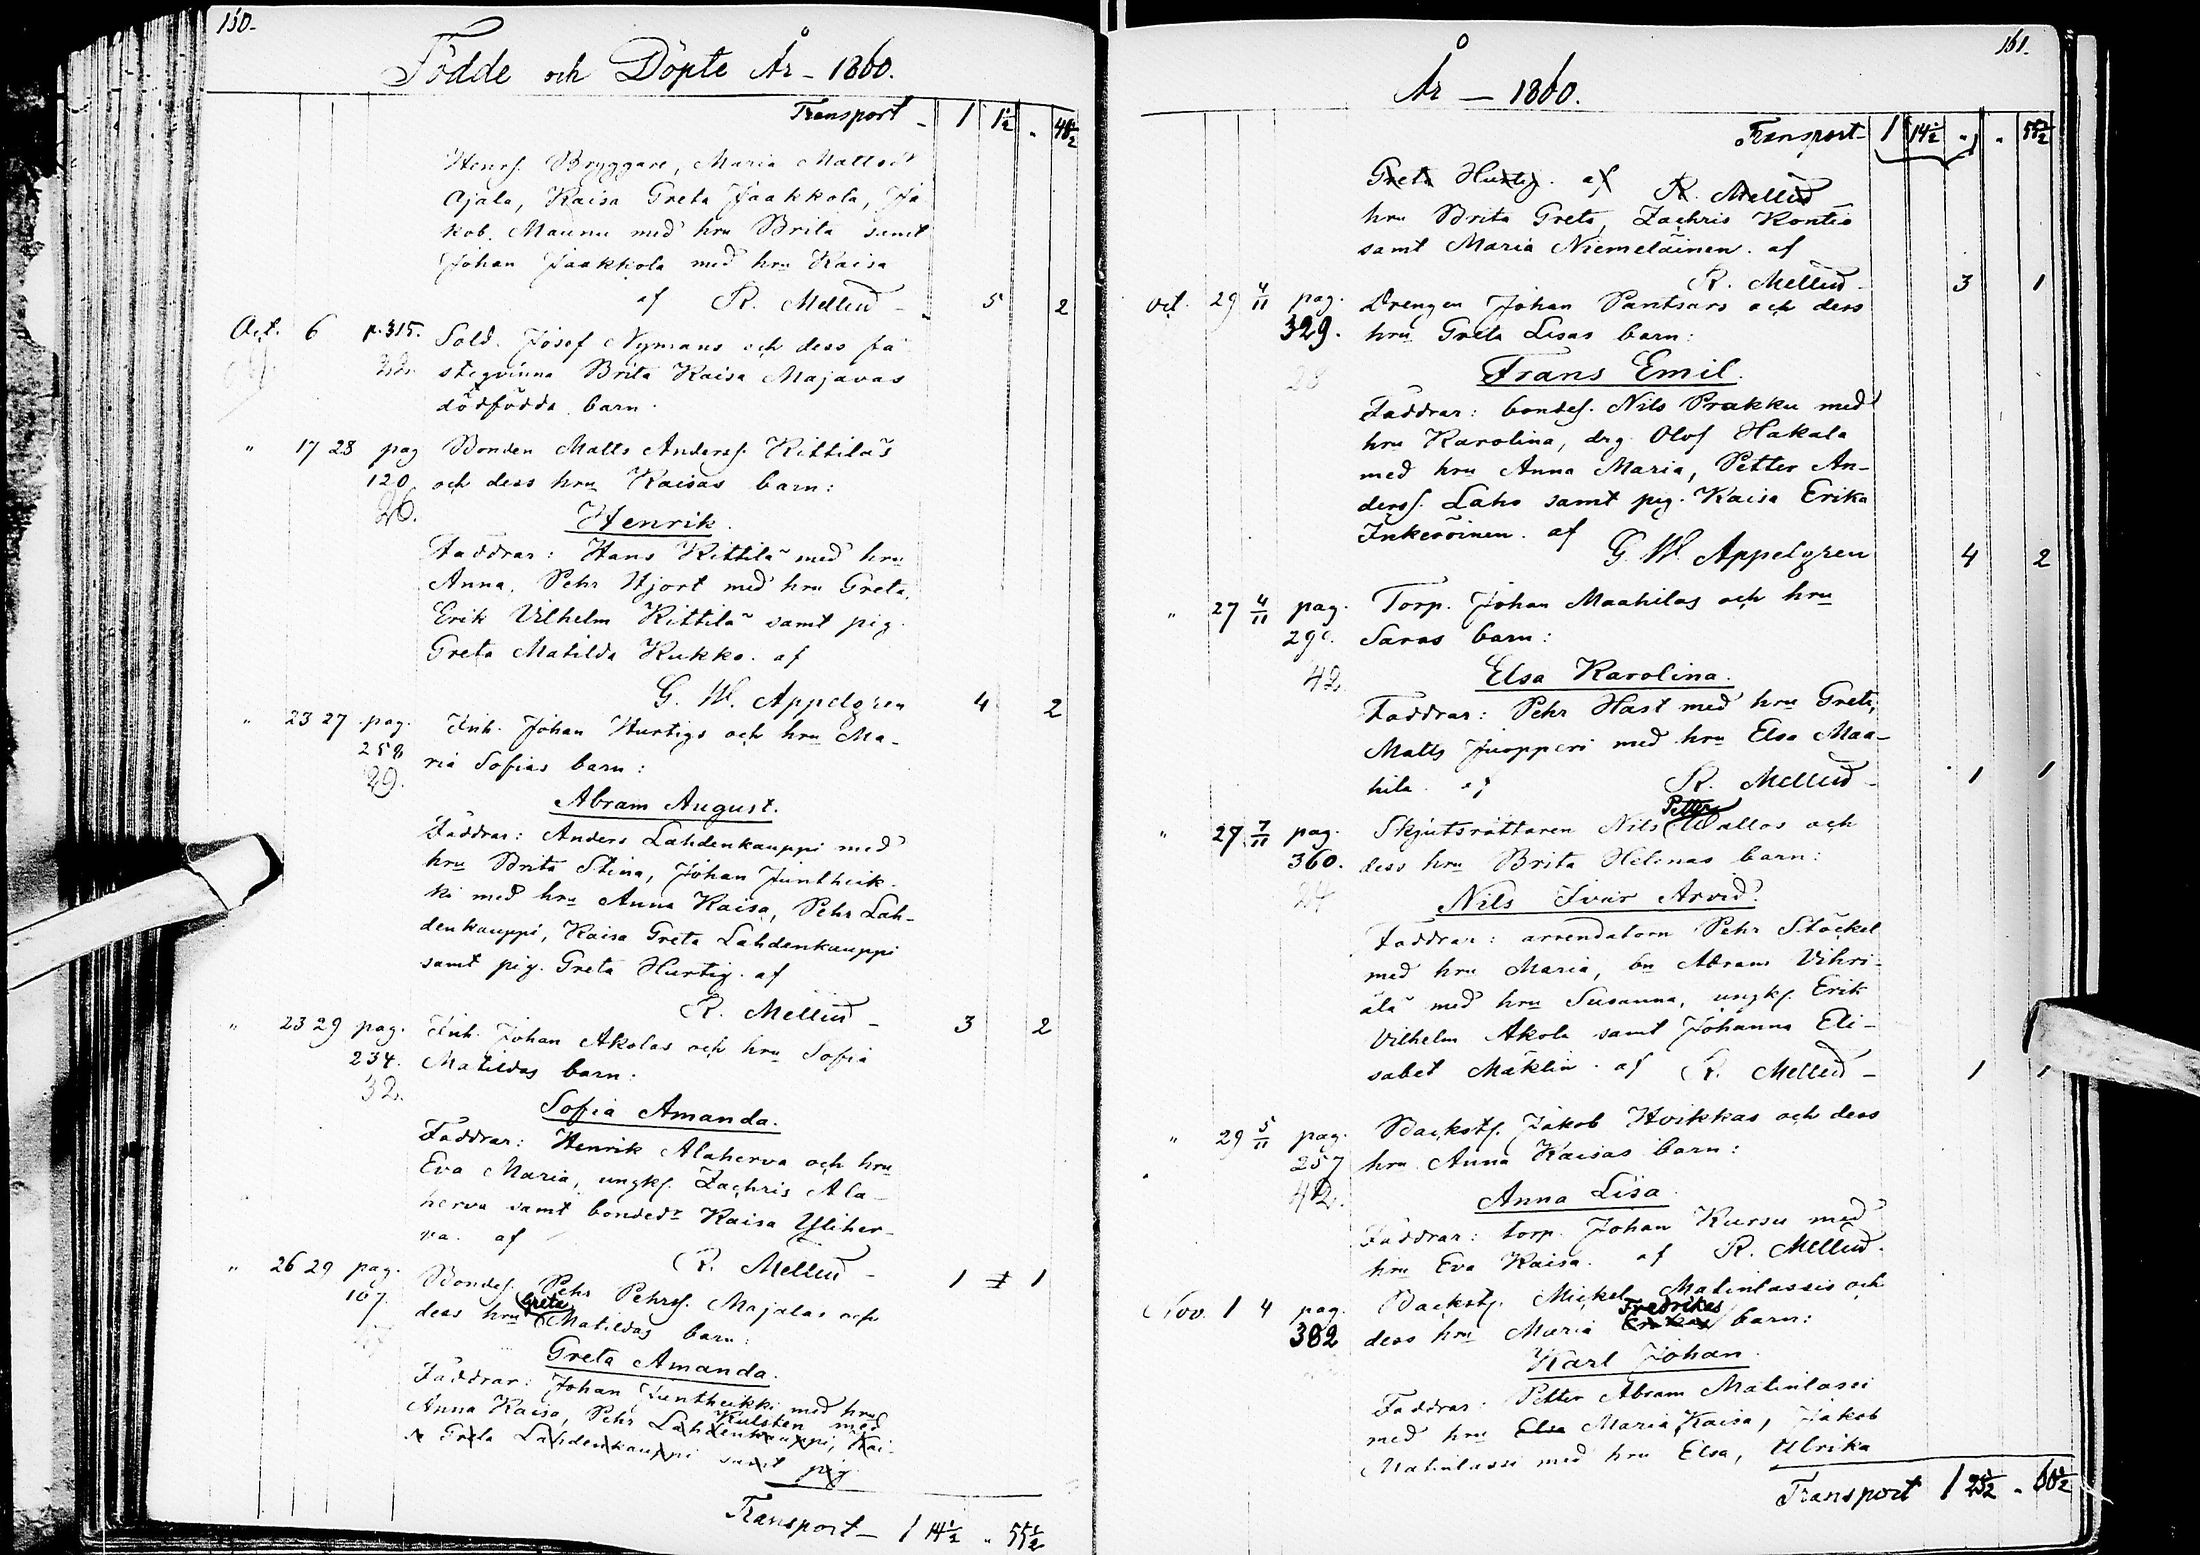 150.
Födde och Döpte År - 1860.
Transport - 1 1½ " 48½
Henrs. Bryggare, Maria Mattsdr
Ajala, Kaisa Greta Jaakkola, Ja
kob Maunu med hru Brita samt
Johan Jaakkola med hru Kaisa
af R. Mellud - 5 2
Oct. 6 p. 315. Sold. Josef Nymans och dess fä
steqvinna Brita Kaisa Majavas
dödfödda barn.
" 17 28 pag Bonden Matts Anderss. Kittilä's
120. och dess hru Kaisas barn:
26. Henrik.
Faddrar: Hans Kittilä med hru
Anna, Pehr Hjort med hru Greta,
Erik Vilhelm Kittilä samt pig.
Greta Matilda Kukko. af
G. W. Appelgren 4 2
" 23 27 pag. Inh. Johan Hurtigs och hru Ma-
258 ria Sofias barn:
29.
Abram August.
Faddrar: Anders Lahdenkauppi med
hru Brita Stina, Johan Juntheik-
ki med hru Anna Kaisa, Pehr Lah-
denkauppi, Kaisa Greta Lahdenkauppi
samt pig. Greta Hurtig. af
R. Mellud - 3 2
" 23 29 pag. Inh. Johan Akolas och hru Sofia
234. Matildas barn:
32.
Sofia Amanda.
Faddrar: Henrik Alaherva och hru
Eva Maria, ungks. Zachris Ala-
herva samt bondedr Kaisa Yliher-
va. af
R. Mellud - 1 1
" 26 29 pag. Bondes. Pehr Pehrss. Majalas och
107. dess hru Greta Matildas barn:
Greta Amanda.
Faddrar: Johan Juntheikki med hru
Anna Kaisa, Pehr Lahdenkauppi, Kai- Kulsten med
sa Greta Lahdenkauppi samt pig.
Transport - 1 14½ " 55½
161.
År - 1860.
Transport - 1 14½ " " 55½
Greta Hurtig. af R. Mellud
hru Brita Greta, Zachris Kontio
samt Maria Niemeläinen. af
R. Mellud - 3 1
Oct. 29 4/11 pag. Drengen Johan Pantsars och dess
329. hru Greta Lisas barn:
23
Frans Emil.
Faddrar: bondes. Nils Prakku med
hru Karolina, drg. Olof Hakala
med hru Anna Maria, Petter An-
derss. Laho samt pig. Kaisa Erika
Inkeröinen. af
G. W. Appelgren 4 2
" 27 4/11 pag. Torp. Johan Maahilas och hru
Saras barn:
42.
Elsa Karolina.
Faddrar: Pehr Hast med hru Greta,
Matts Juopperi med hru Elsa Maa-
hila. af R. Mellud - 1 1
" 27 7/11 pag. Skjutsrättaren Nils Petter Wallos och
360. dess hru Brita Helenas barn:
24
Nils Ivar Arvid.
Faddrar: arrendatorn Pehr Stöckel
med hru Maria, bn Abram Vihri-
älä med hru Susanna, ungks. Erik
Vilhelm Akola samt Johanna Eli-
sabet Mäklin. af R. Mellud - 1 1
" 29 5/11 pag. Backsts. Jakob Hvikkas och dess
257 hru Anna Kaisas barn:
42.
Anna Lisa.
Faddrar: torp. Johan Kursu med
hru Eva Kaisa. af R. Mellud.
Nov. 1 4 pag. Backsts. Mickel Matinlassis och
382 dess hru Maria Fredrikas barn:
Karl Johan.
Faddrar: Petter Abram Matinlassi
med hru Elsa Maria Kaisa, Jakob
Matinlassi med hru Elsa, Ulrika
Transport 1 23½ " 60½